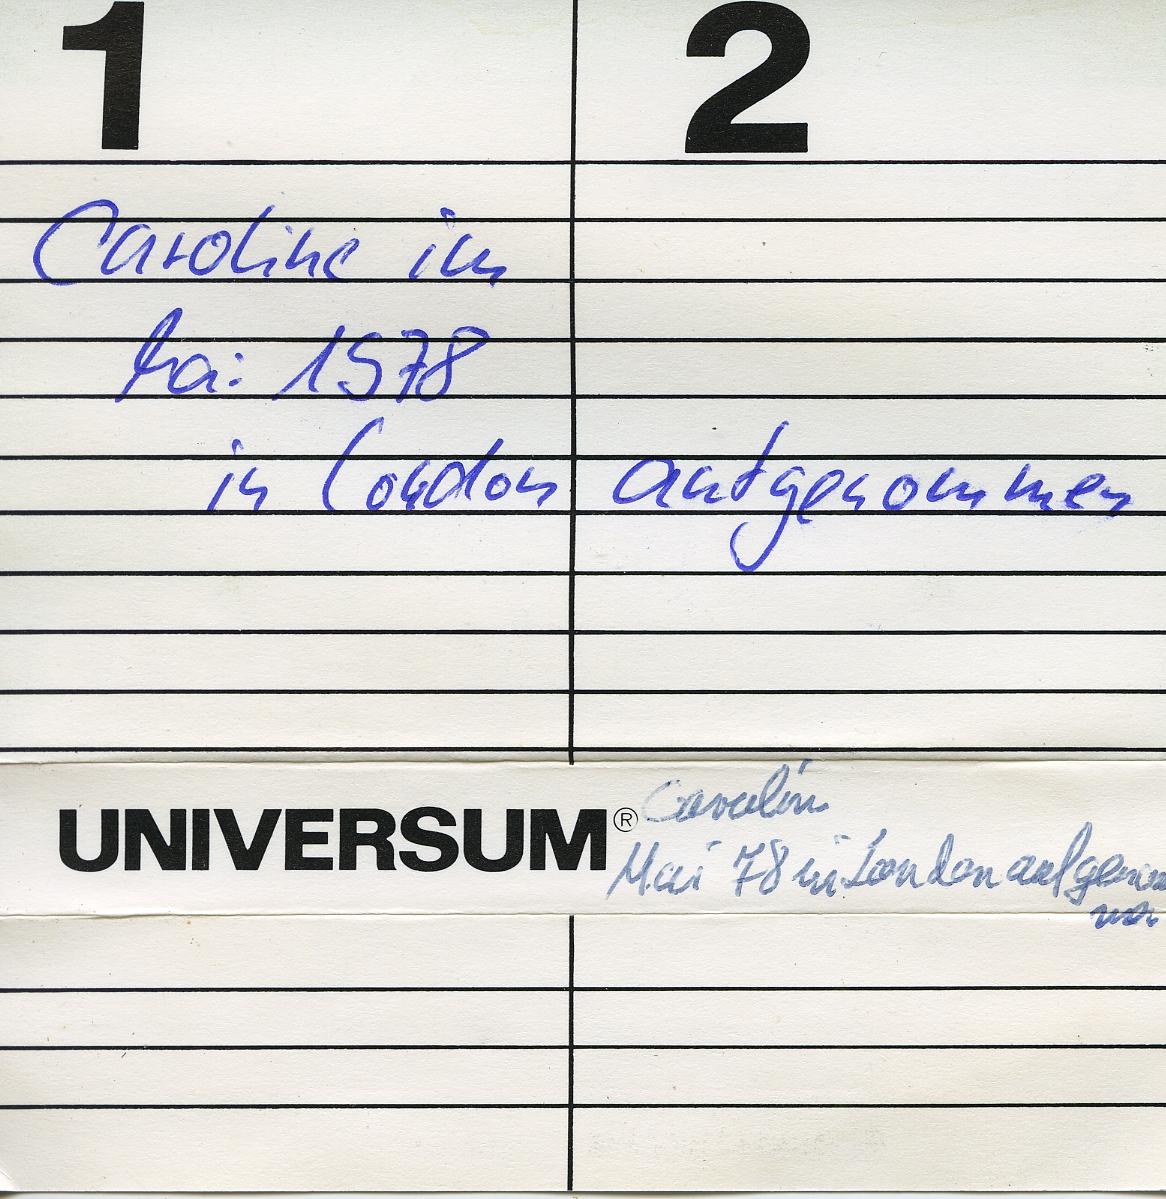 1 2
Caroline im
Mai 1978
in London aufgenommen
UNIVERSUM®
Carolin
Mai 78 in London aufgenom
men